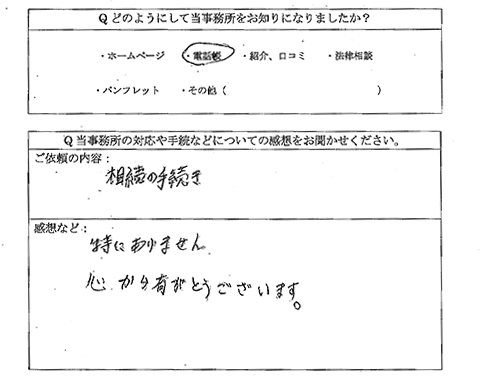 Q どのようにして当事務所をお知りになりましたか？
・ホームページ ・電話帳 ・紹介、口コミ ・法律相談
・パンフレット ・その他（ ）
Q 当事務所の対応や手続などについての感想をお聞かせください。
ご依頼の内容：
相続の手続き
感想など：
特にありません
心から有がとうございます。